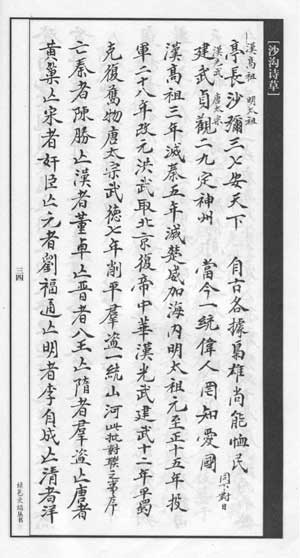 [沙沟诗草]
漢高祖 明太祖
亭長沙彌三七安天下 自古各據爲雄尚能恤民
漢光武 唐太宗
建武貞觀二九定神州 當今一統偉人罔知愛國 對曰
漢高祖三年滅秦五年滅楚威加海內明太祖元至正十五年投
軍二十八年改元洪武取北京復帝中華漢光武建武十二年平蜀
克復舊物唐太宗武德七年削平羣盜一統山河此批對聯之序
亡秦者陳勝亡漢者董卓亡晉者八王亡隋者羣盜亡唐者
黄巢亡宋者奸臣亡元者劉福通亡明者李自成亡清者洋
三四
丛书